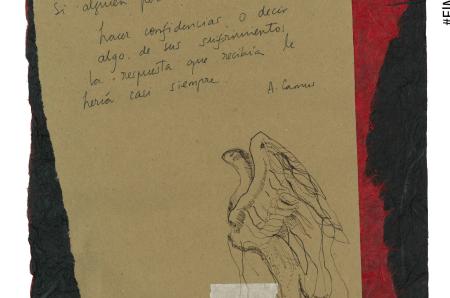 Si alguien
hacer confidencias o decir
algo de sus sufrimientos
la respuesta que recibia le
hería casi siempre.
A. Camus